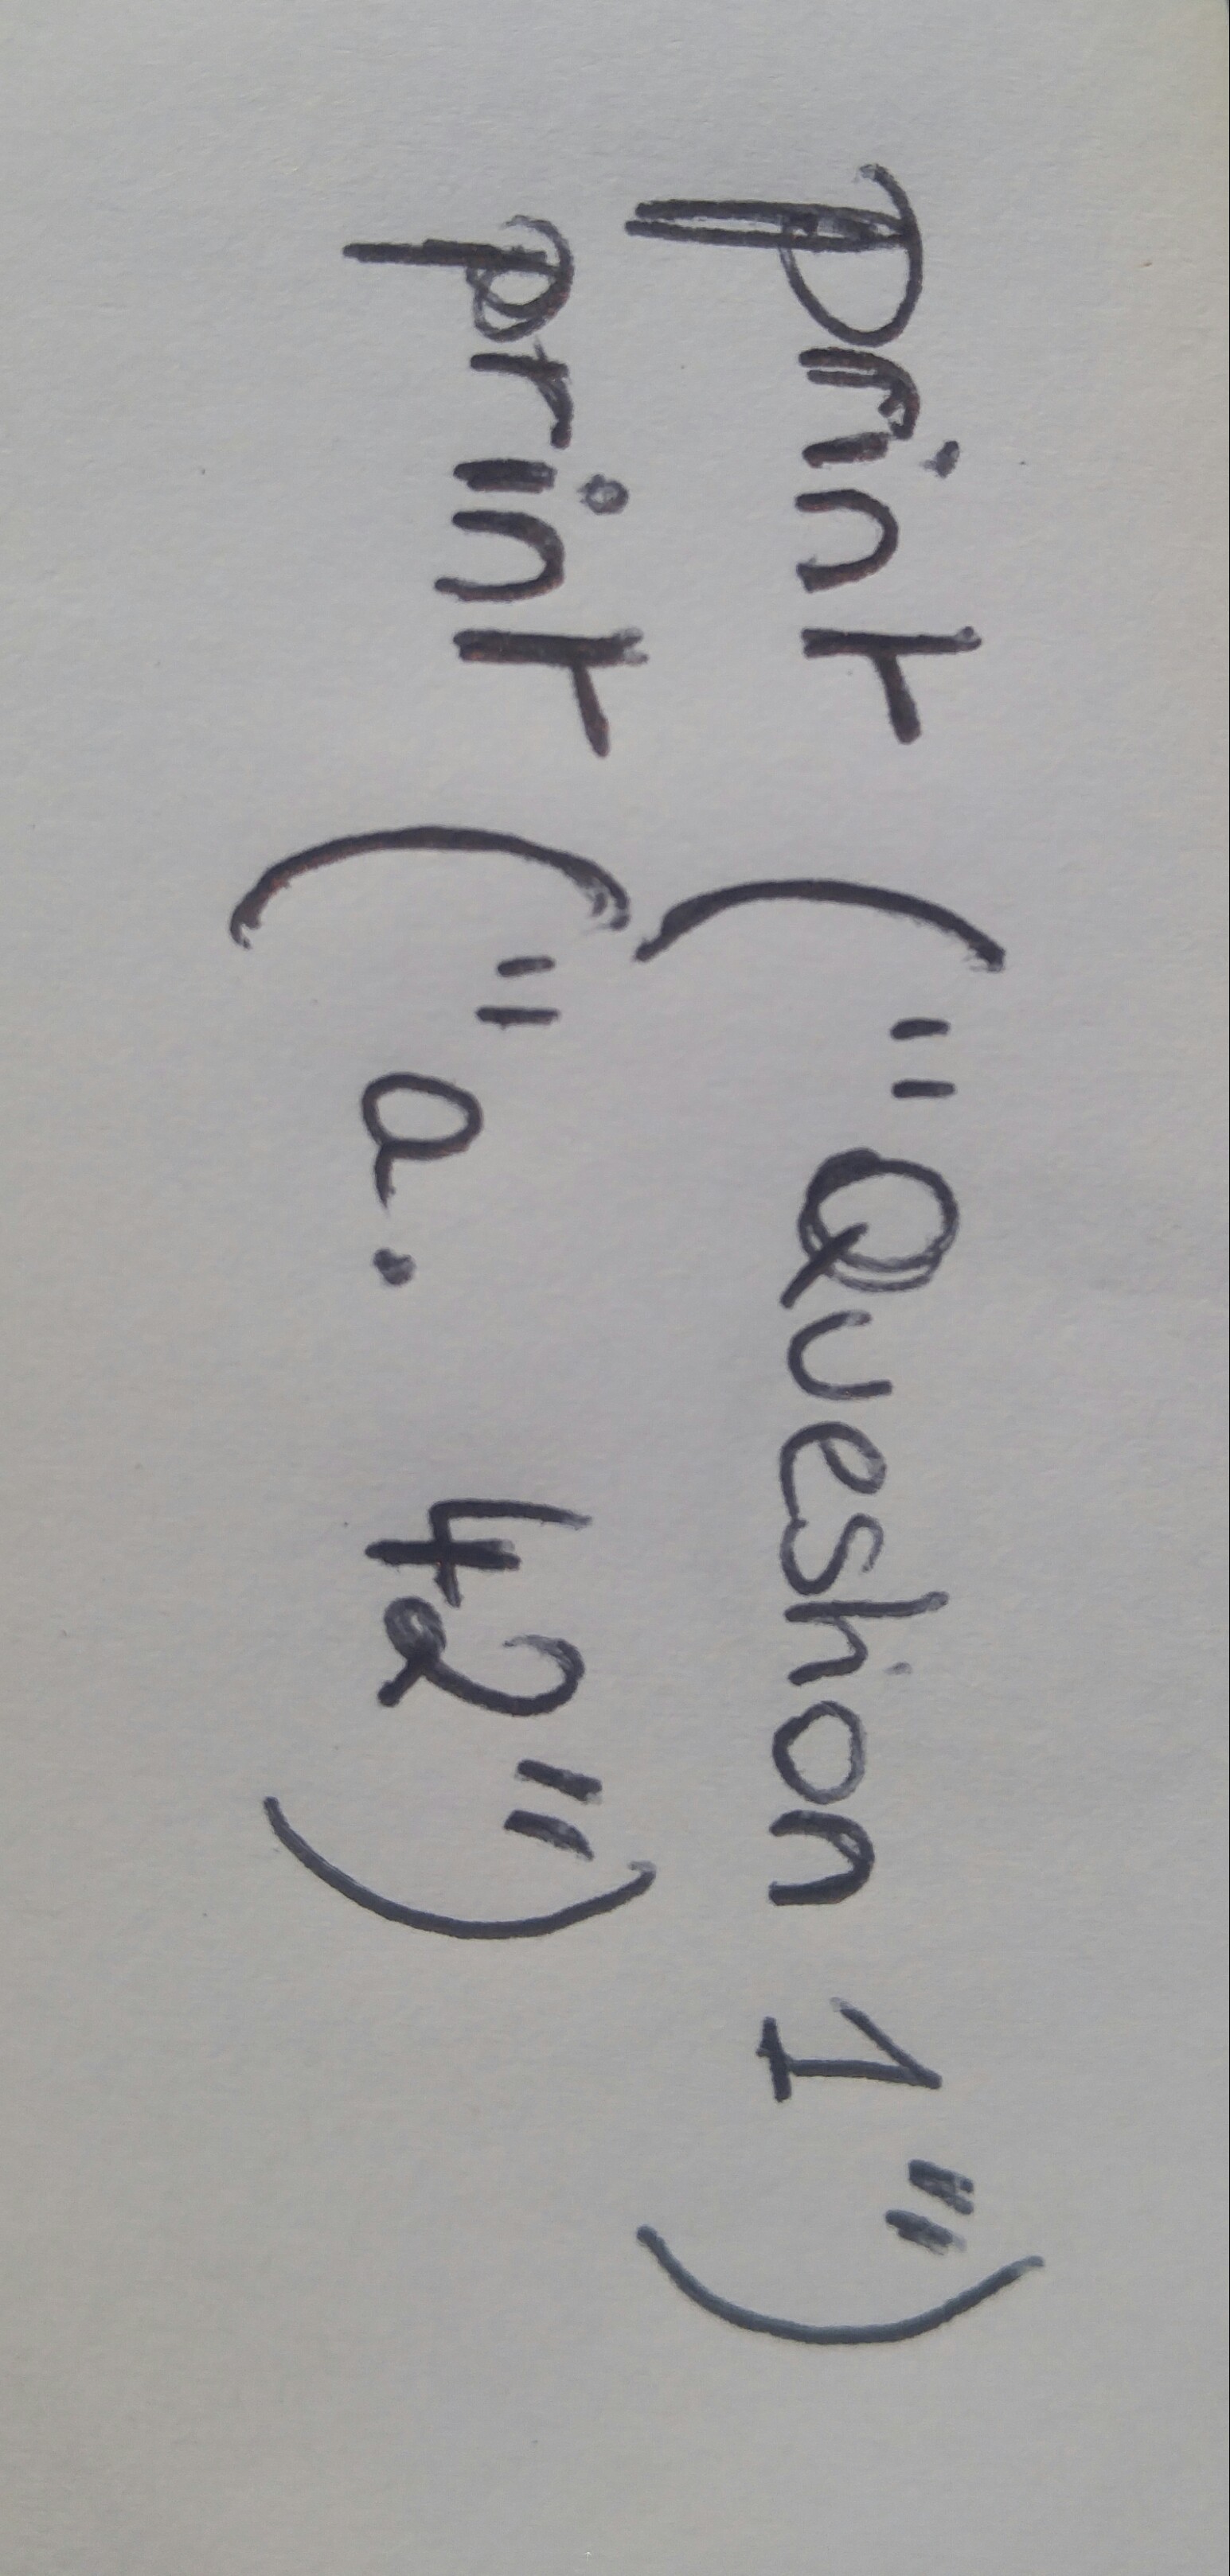 Print ("Question 1")
print ("a. 42")